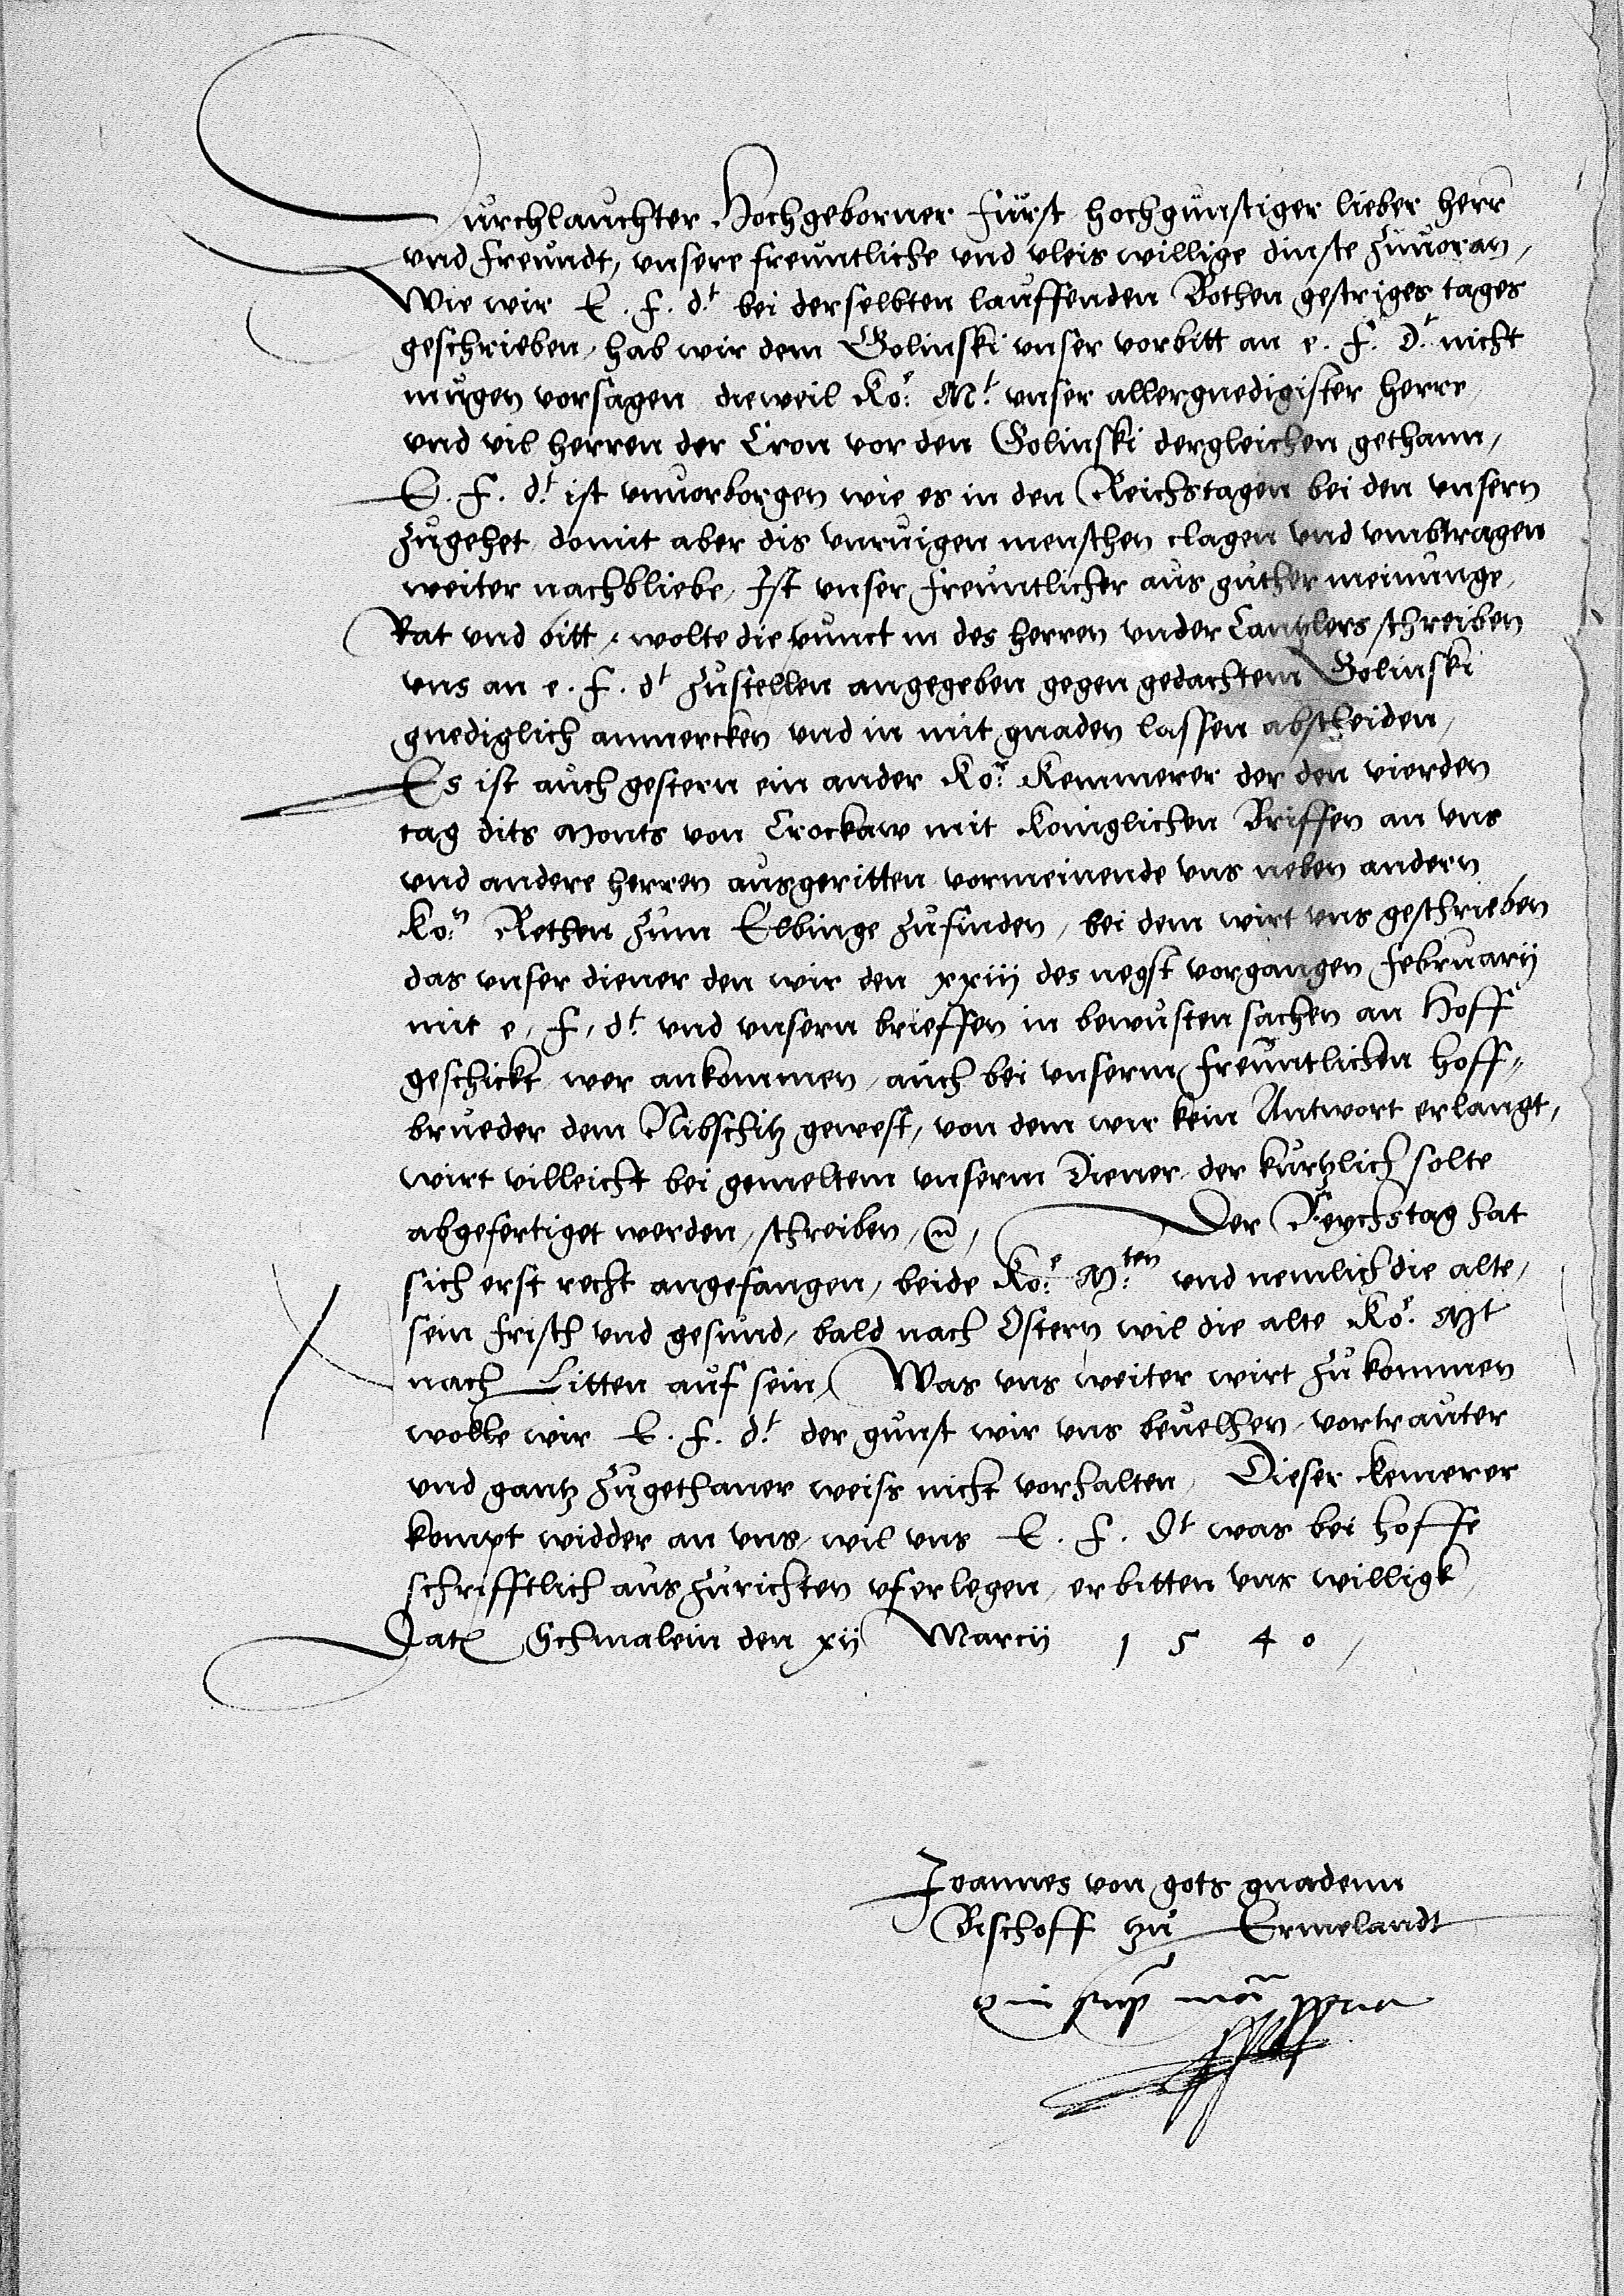 Durchlauchter Hochgeborner Furst hochgunstiger lieber herr
vnd freundt, vnsere freuntliche vnd vleis willige dinste zuuoran,
Wie wir E. F. d.t bei derselbten lauffenden Bothen gestriges tages
geschrieben, hab wir dem Golinski vnser vorbitt an e. F. D.t nicht
mugen vorsagen dieweil Ko.e M.t vnser allergnedigister herre,
vnd vil herren der Cron vor den Golinski dergleichen gethann,
E. F. d.t ist vnuorborgen wie es in den Reichstagen bei den vnsern
zugehet, domit aber dis vnruigen menschen clagen vnd vmbtragen
weiter nachbliebe, Ist vnser freuntlicher aus guther meinunge,
Rat vnd bitt, wolte die punct in des herren vnder Cantzlers schreiben
vns an e. F. d.t zustellen angegeben gegen gedachtem Golinski
gnediglich anmercken vnd in mit gnaden lassen abscheiden,
Es ist auch gestern ein ander Ko.r Kemmerer der den vierden
tag dits Monts von Crockaw mit koniglichen Briffen an vns
vnd andere herren ausgeritten vormeinende vns neben andern
Ko.n Rethen zum Elbinge zufinden, bei dem wirt vns geschrieben
das vnser diener den wir den xxiij des negst vorgangen Februarij
mit e. F. d.t vnd vnsern brieffen in bewusten sachen an Hoff
geschickt wer ankommen, auch bei vnserm freuntlichen hoff-
brueder dem Nibschitz gewest, von dem wir kein Antwort erlangt,
wirt villeicht bei gemeltem vnserm Diener, der kurtzlich solte
abgefertiget werden, schreiben, etc. Der Reychstag hat
sich erst recht angefangen, beide Ko.e M.ten vnd nemlich die alte,
sein frisch vnd gesund, bald nach Ostern wil die alte Ko.e Mt
nach Litten auf sein, Was vns weiter wirt zu kommen
wolle wir E. F. d.t der gunst wir vns beuelhen, vortrauter
vnd gantz zugethaner weiss nicht vorhalten, Dieser kemerer
kompt widder an vns, wil vns E. F. Dt was bei hoffe
schrifftlich aus zurichten vferlegen, erbitten vns willigk,
Dat Schmalein den xij Marcij 1540,
Joannes von gots gnadenn
Bischoff zu Ermelandt